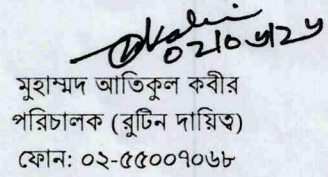 ০২/০৬/২৬
মুহাম্মদ আতিকুল কবীর
পরিচালক (রুটিন দায়িত্ব)
ফোন: ০২-৫৫০০৭০৬৮